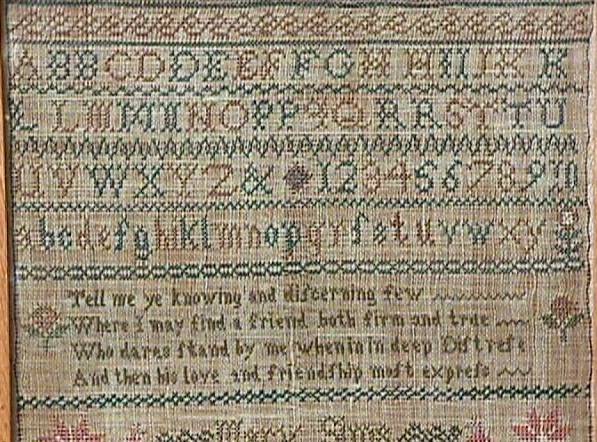 A B B C D D E E F F G H H I I K K
L L M M I N O P P Q Q R R S T T U
U V W X Y Z & 1 2 3 4 5 6 7 8 9 10
a b c d e f g h i k l m n o p q r ſ s t u v w x y
Tell me ye knowing and diſcerning few
Where I may find a friend both firm and true
Who dares ſtand by me when in in deep Diſtreſs
And then his love and friendſhip moſt expreſs
Mary Ann